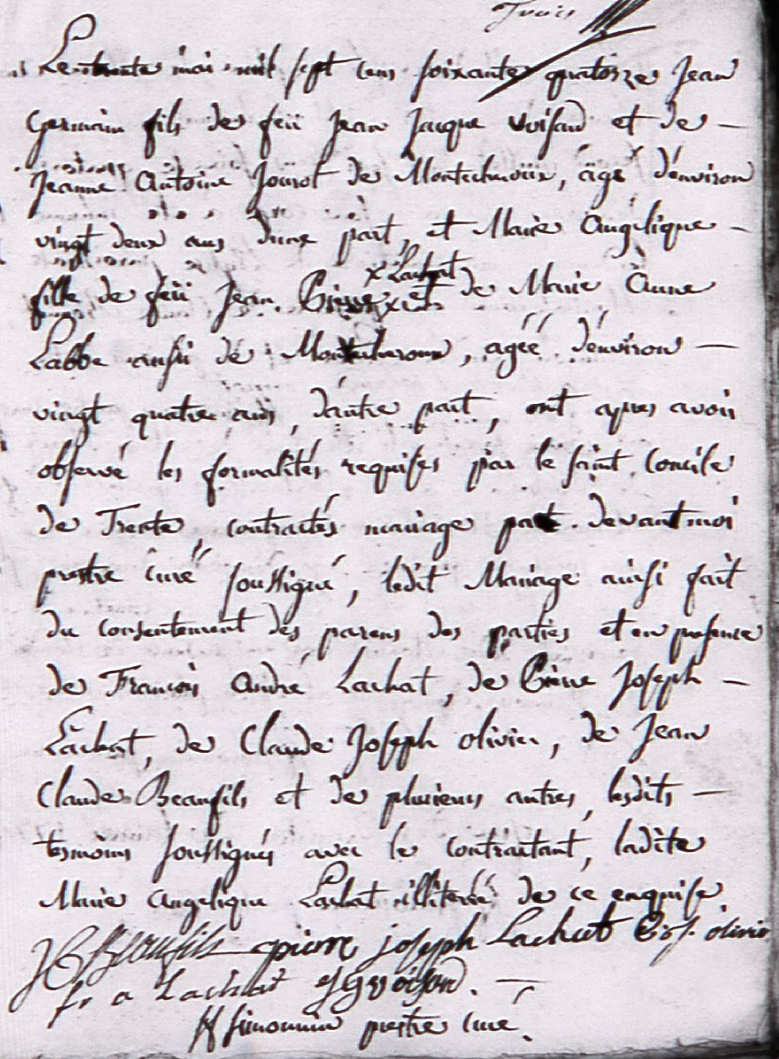 Le trente mai mil sept cens soixante quatorze Jean
Germain fils de feü Jean Jacque Voisard et de —
Jeanne Antoine Jouvot de Montecheroüx, âgé d'énviron
vingt deux ans d'une part, et Marie Angélique —
fille de feü Jean Pierre x Lachat x et de Marie Anne
Labbe aussi dé Montecheroux, agéé d'énviron —
vingt quatre ans, d'autre part, ont apres avoir
observé les formalités requises par le saint Concile
de Trente, contractés mariage par devant moi
prestre curé soussigné, ledit Mariage ainsi fait
du consentement des parens des parties et en presence
de Francois André Lachat, de Pierre Joseph —
Lachat, de Claude Joseph olivier, de Jean
Claude Beaufils et de plusieurs autres, lesdits —
tesmoins soussignés avec le contractant, ladite
Marie Angelique Lachat illiterée de ce enquise.
J C Beaufils pierre joseph Lachat C j. olivie
fr a Lachat J g voisard. —
simonnin prestre curé.